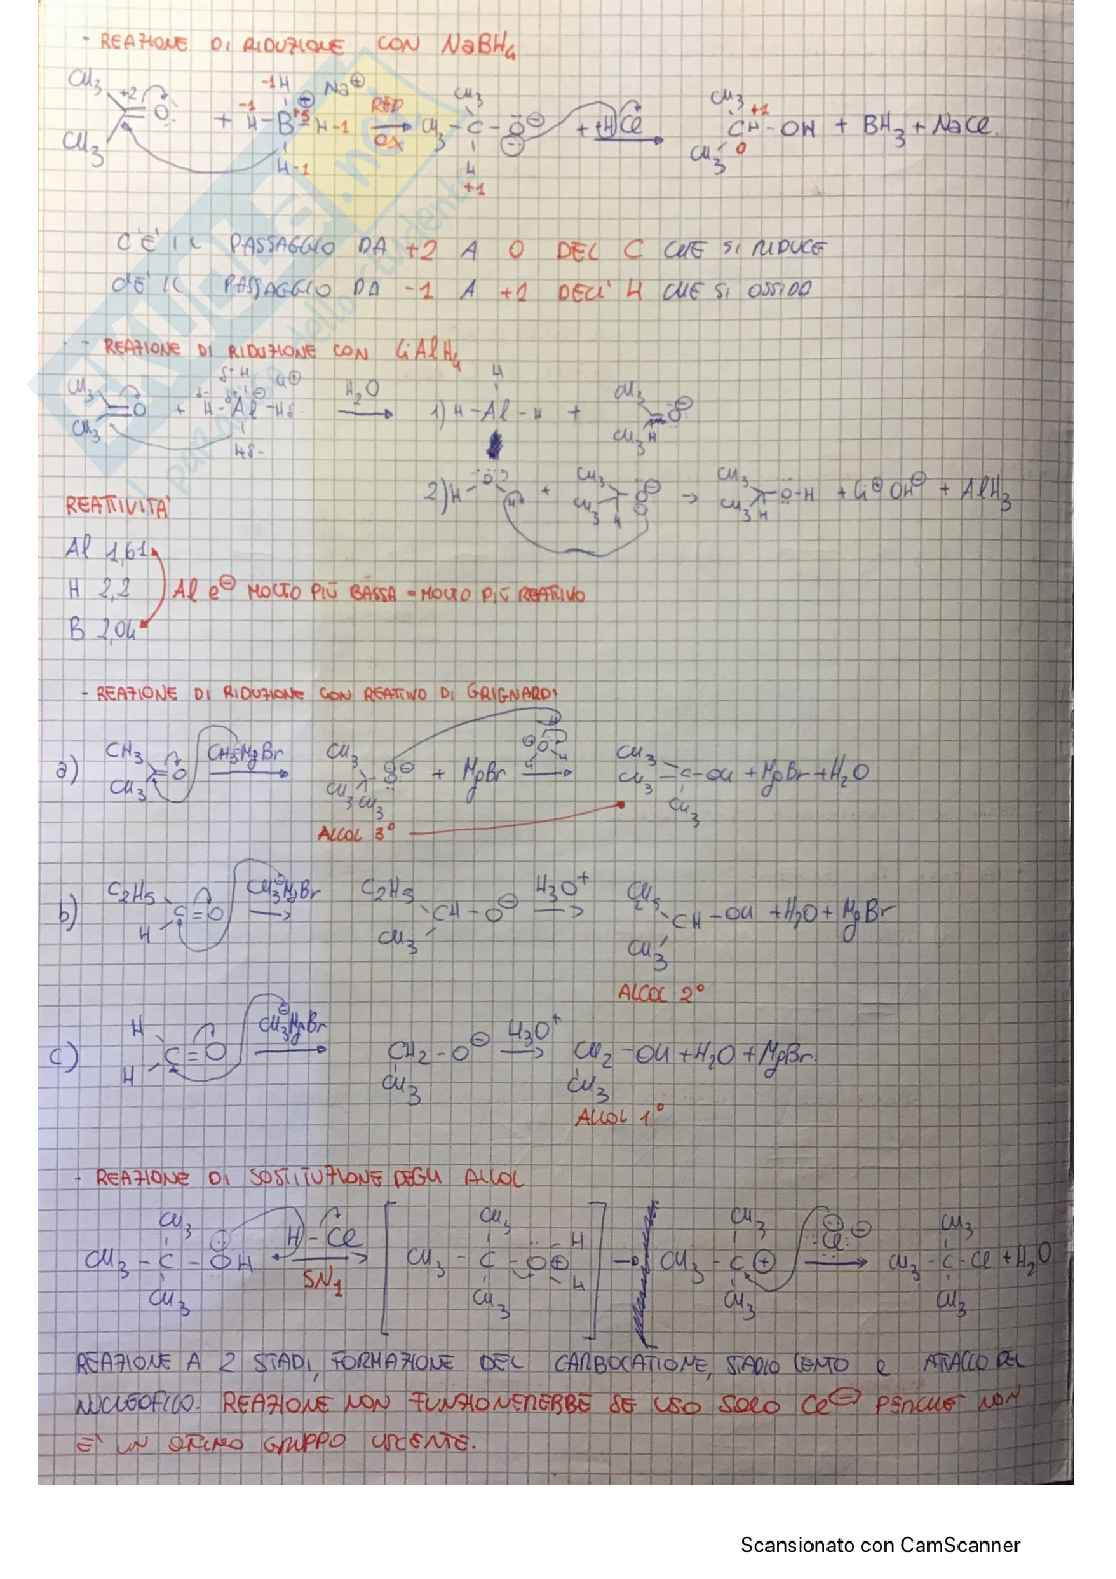 - REAZIONE DI RIDUZIONE CON NaBH4
CH3 +2 O + H -1 -1 H B +3 H -1 H -1 Na⊕ RED OX CH3 CH3 - C - O⊖ H +1 + HCl CH3 CH3 CH - OH +1 0 + BH3 + NaCl
CH3
C'È IL PASSAGGIO DA +2 A 0 DEL C CHE SI RIDUCE
C'È IL PASSAGGIO DA -1 A +1 DELL'H CHE SI OSSIDA
- REAZIONE DI RIDUZIONE CON LiAlH4
CH3 CH3 = O + H - Al - H Li⊕ H2O 1) H - Al - H + CH3 CH3 H O⊖
2) H - O H + CH3 CH3 H O⊖ → CH3 CH3 H O-H + Li⊕ OH⊖ + AlH3
REATTIVITÀ
Al 1,61
H 2,2 Al e⊖ MOLTO PIÙ BASSA = MOLTO PIÙ REATTIVO
B 2,04
- REAZIONE DI RIDUZIONE CON REATTIVO DI GRIGNARD
a) CH3 CH3 = O CH3MgBr CH3 CH3 CH3 O⊖ + MgBr CH3 CH3 CH3 C - OH + MgBr + H2O
ALCOL 3°
b) C2H5 H C = O CH3MgBr C2H5 CH3 CH - O⊖ H3O+ C2H5 CH3 CH - OH + H2O + MgBr
ALCOL 2°
c) H H C = O CH3MgBr CH2 - O⊖ CH3 H3O+ CH2 - OH CH3 + H2O + MgBr
ALCOL 1°
- REAZIONE DI SOSTITUZIONE DEGLI ALCOL
CH3 CH3 - C - OH CH3 H - Cl SN1 CH3 CH3 - C - O⊕ H H CH3 → CH3 CH3 - C⊕ CH3 Cl⊖ CH3 CH3 - C - Cl CH3 + H2O
REAZIONE A 2 STADI, FORMAZIONE DEL CARBOCATIONE, STADIO LENTO E ATTACCO DEL
NUCLEOFILO. REAZIONE NON FUNZIONEREBBE SE USO SOLO Cl⊖ PERCHÉ NON
È UN OTTIMO GRUPPO USCENTE.
Scansionato con CamScanner